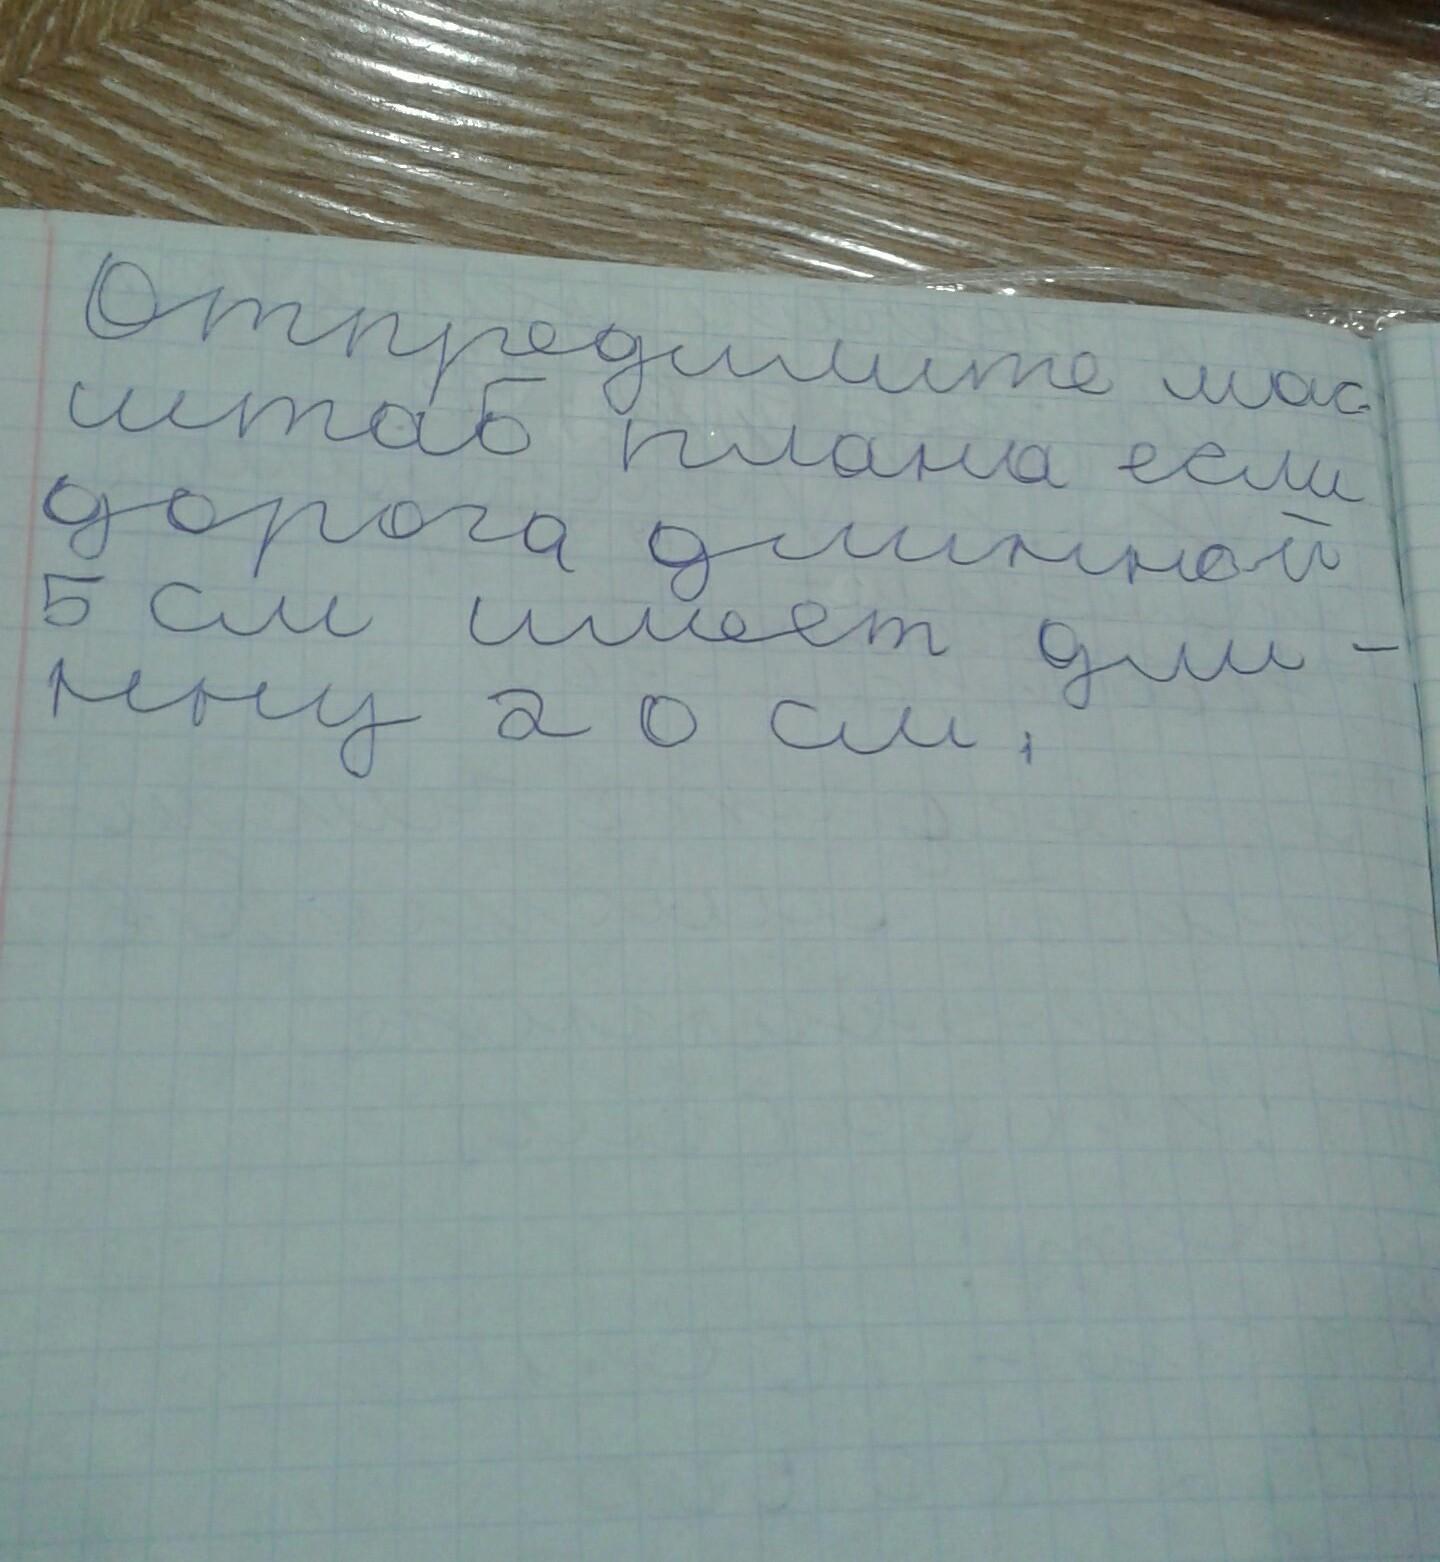 Отпредилите мас
штаб плана если
дорога длинной
5 см имеет дли-
нну 20 см.